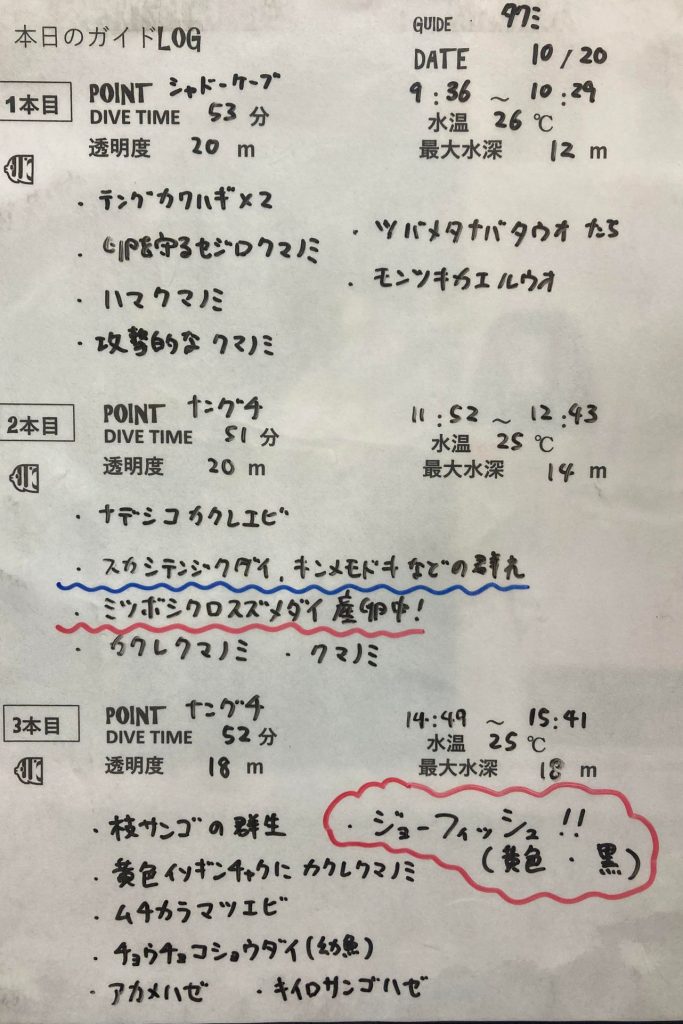 本日のガイドLOG
GUIDE タクミ
DATE 10/20
1本目 POINT シャドーケーブ 9:36 ～ 10:29
DIVE TIME 53 分 水温 26 ℃
透明度 20 m 最大水深 12 m
・テングカワハギ×2
・卵を守るセジロクマノミ
・ハマクマノミ
・攻勢的な クマノミ
・ツバメタナバタウオ たち
・モンツキカエルウオ
2本目 POINT ナングチ 11:52 ～ 12:43
DIVE TIME 51 分 水温 25 ℃
透明度 20 m 最大水深 14 m
・ナデシコカクレエビ
・スカシテンジクダイ、キンメモドキなどの群れ
・ミツボシクロスズメダイ 産卵中!
・カクレクマノミ ・クマノミ
3本目 POINT ナングチ 14:49 ～ 15:41
DIVE TIME 52 分 水温 25 ℃
透明度 18 m 最大水深 18 m
・枝サンゴの群生
・黄色イソギンチャクに カクレクマノミ
・ムチカラマツエビ
・チョウチョコショウダイ(幼魚)
・アカメハゼ ・キイロサンゴハゼ
・ジョーフィッシュ!!
(黄色・黒)